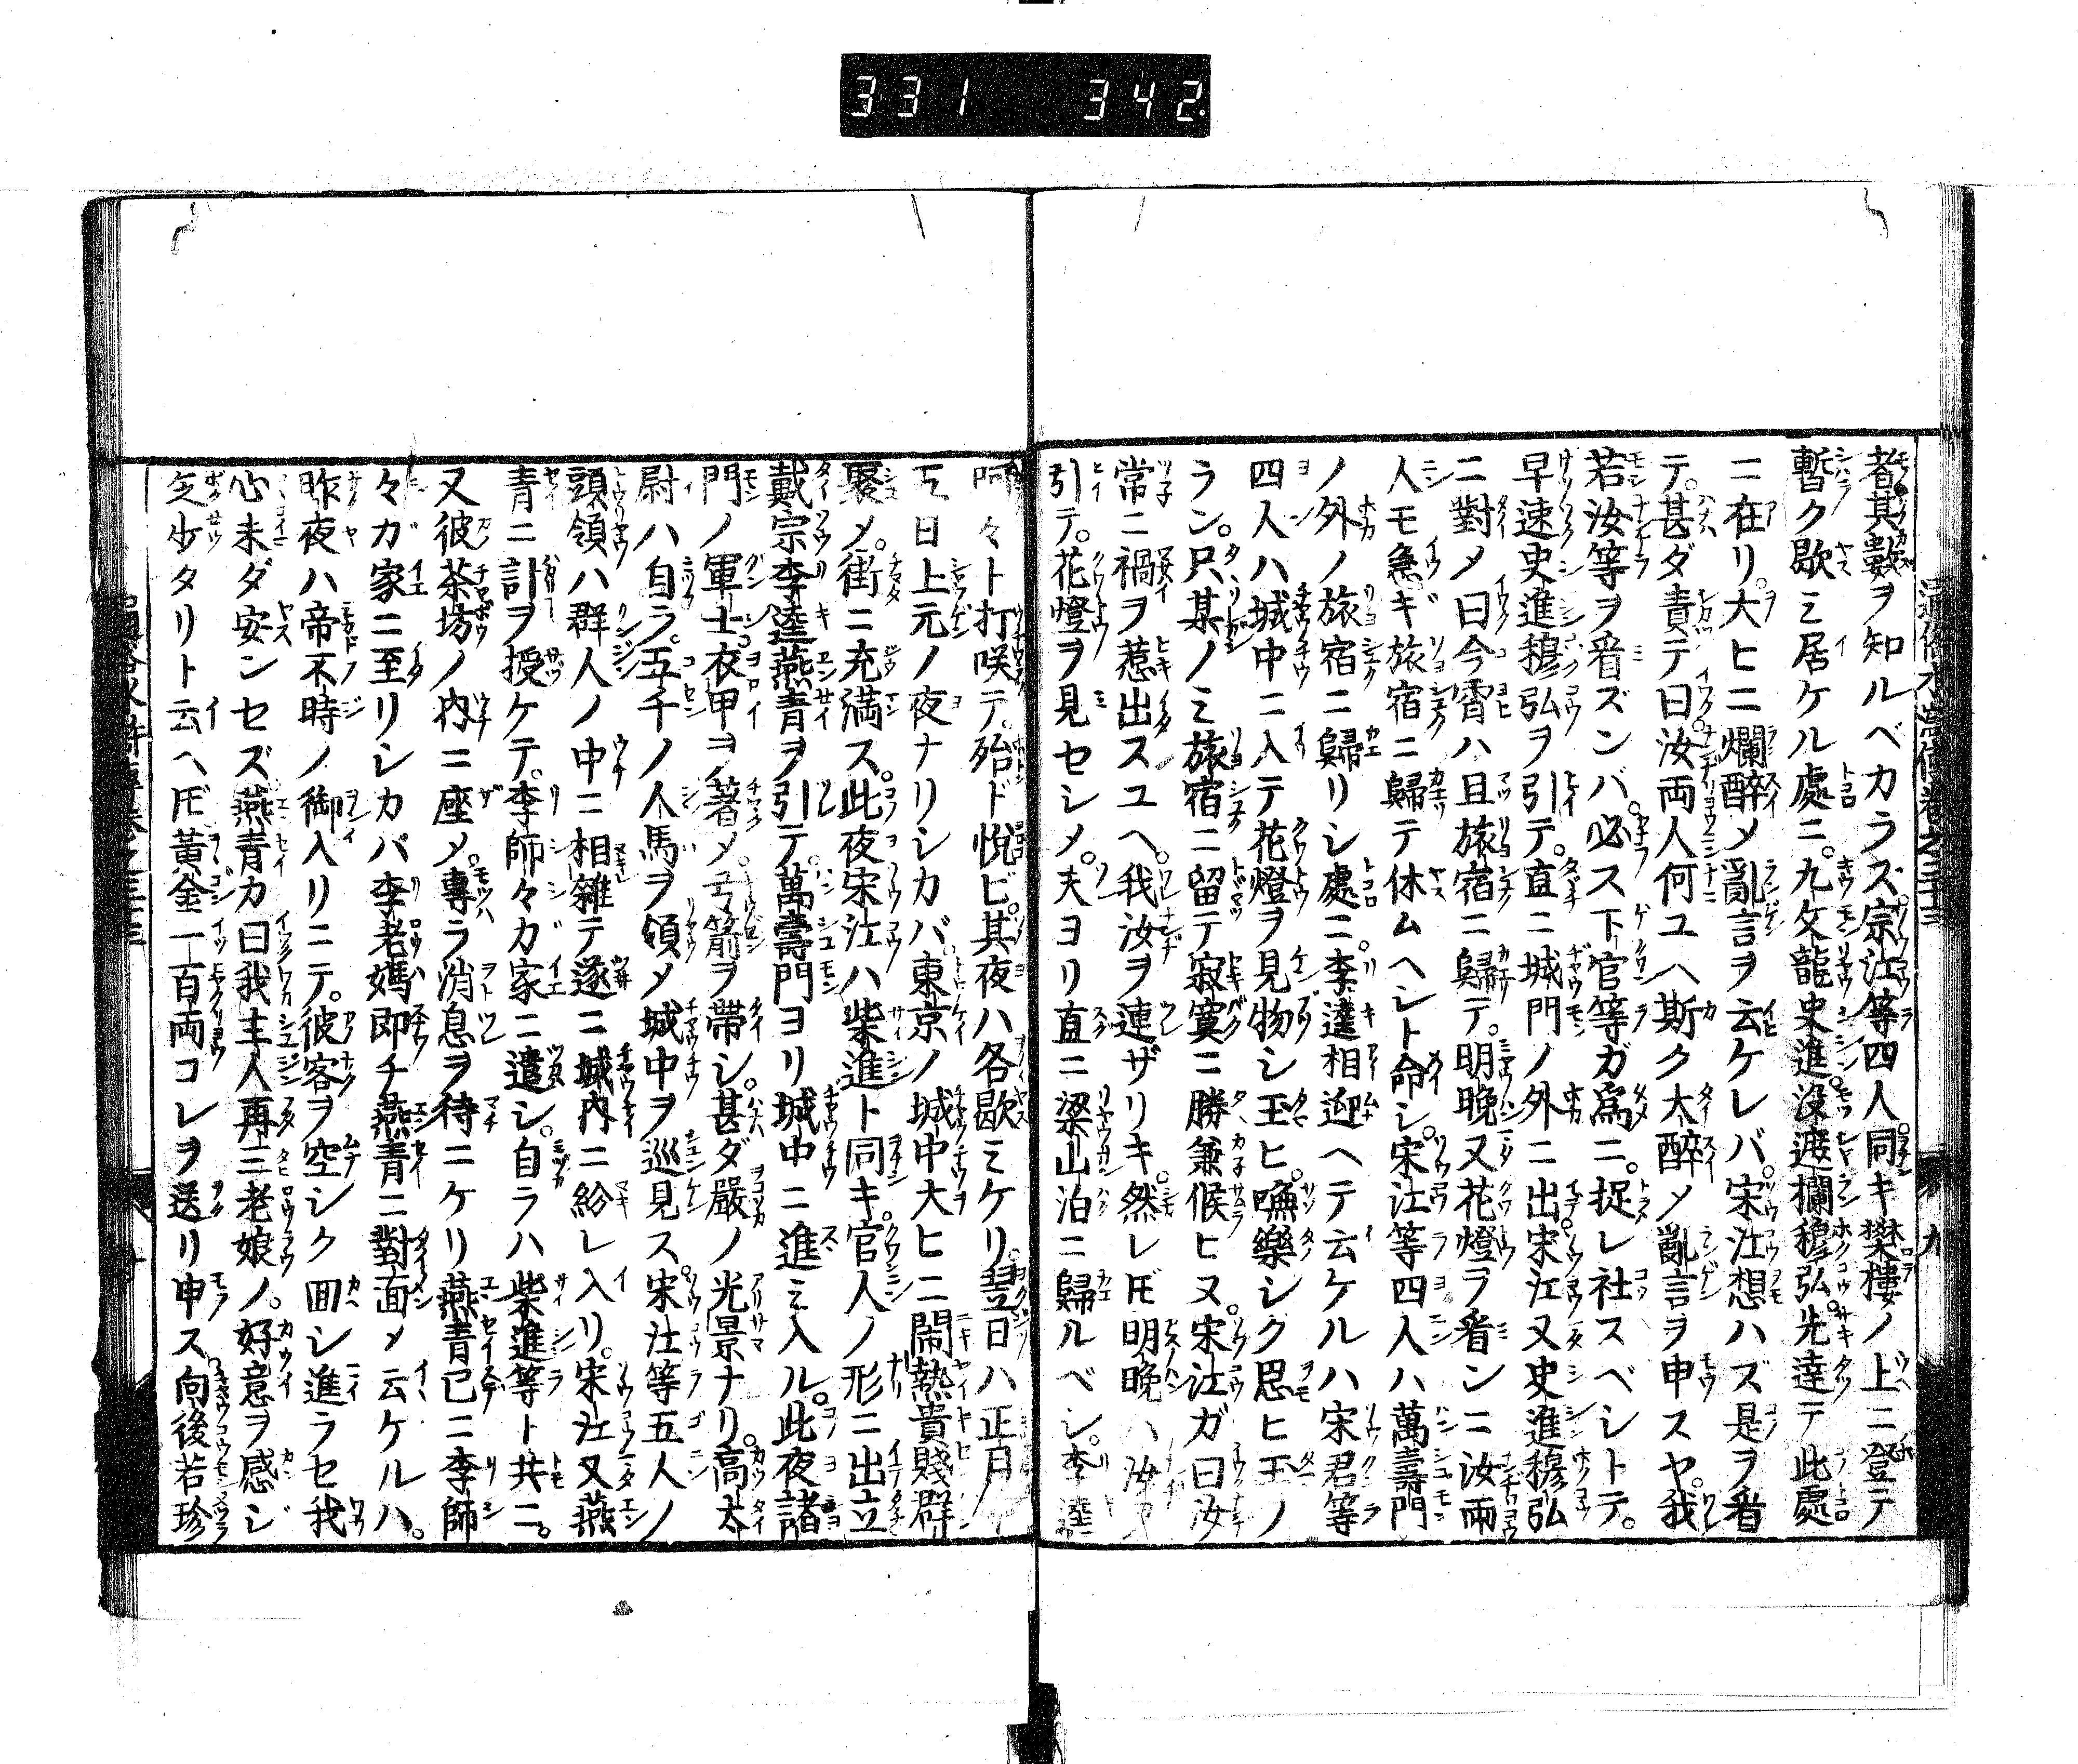 331 342
者其數ヲ知ルベカラズ宗江等四人同キ樊樓ノ上ニ登テ
暫ク歇ミ居ケル處ニ九文龍史進没遮攔穆弘先達テ此處
ニ在リ大ヒニ爛醉メ亂言ヲ云ケレバ宋江想ハズ是ヲ看
テ甚ダ責テ曰汝両人何ユヘ斯ク大醉メ亂言ヲ申スヤ我
若汝等ヲ看ズンバ必ス下官等ガ爲ニ捉レ社スベシトテ
早速史進穆弘ヲ引テ直ニ城門ノ外ニ出宋江又史進穆弘
ニ對メ曰今霄ハ且旅宿ニ歸テ明晩又花燈ヲ看ンニ汝両
人モ急ギ旅宿ニ歸テ休ムヘシト命シ宋江等四人ハ萬壽門
ノ外ノ旅宿ニ歸リシ處ニ李逵相迎ヘテ云ケルハ宋君等
四人ハ城中ニ入テ花燈ヲ見物シ玉ヒ嘸樂シク思ヒ玉ノ
ラン只某ノミ旅宿ニ留テ寂寞ニ勝兼候ヒヌ宋江ガ曰汝
常ニ禍ヲ惹出スユヘ我汝ヲ連ザリキ然レ𪜈明晩ハ汝ヲ
引テ花燈ヲ見セシメ夫ヨリ直ニ梁山泊ニ歸ルベシ李逵
呵々ト打咲テ殆ド悦ビ其夜ハ各歇ミケリ翌日ハ正月十
五日上元ノ夜ナリシカバ東京ノ城中大ヒニ閙熱貴賤群
聚メ街ニ充満ス此夜宋江ハ柴進ト同キ官人ノ形ニ出立
戴宗李逵燕青ヲ引テ萬壽門ヨリ城中ニ進ミ入ル此夜諸
門ノ軍士衣甲ヲ著メ弓箭ヲ帶シ甚ダ嚴ノ光景ナリ高太
尉ハ自ラ五千ノ人馬ヲ領メ城中ヲ巡見ス宋江等五人ノ
頭領ハ群人ノ中ニ相雜テ遂ニ城内ニ紛レ入リ宋江又燕
青ニ計ヲ授ケテ李師々カ家ニ遣シ自ラハ柴進等ト共ニ
又彼茶坊ノ内ニ座メ專ラ消息ヲ待ニケリ燕青已ニ李師
々ガ家ニ至リシカバ李老媽即チ燕青ニ對面メ云ケルハ
昨夜ハ帝不時ノ御入リニテ彼客ヲ空シク囬シ進ラセ我
心未ダ安ンセズ燕青カ曰我主人再三老娘ノ好意ヲ感シ
乏少タリト云ヘ𪜈黄金一百両コレヲ送リ申ス向後若珍